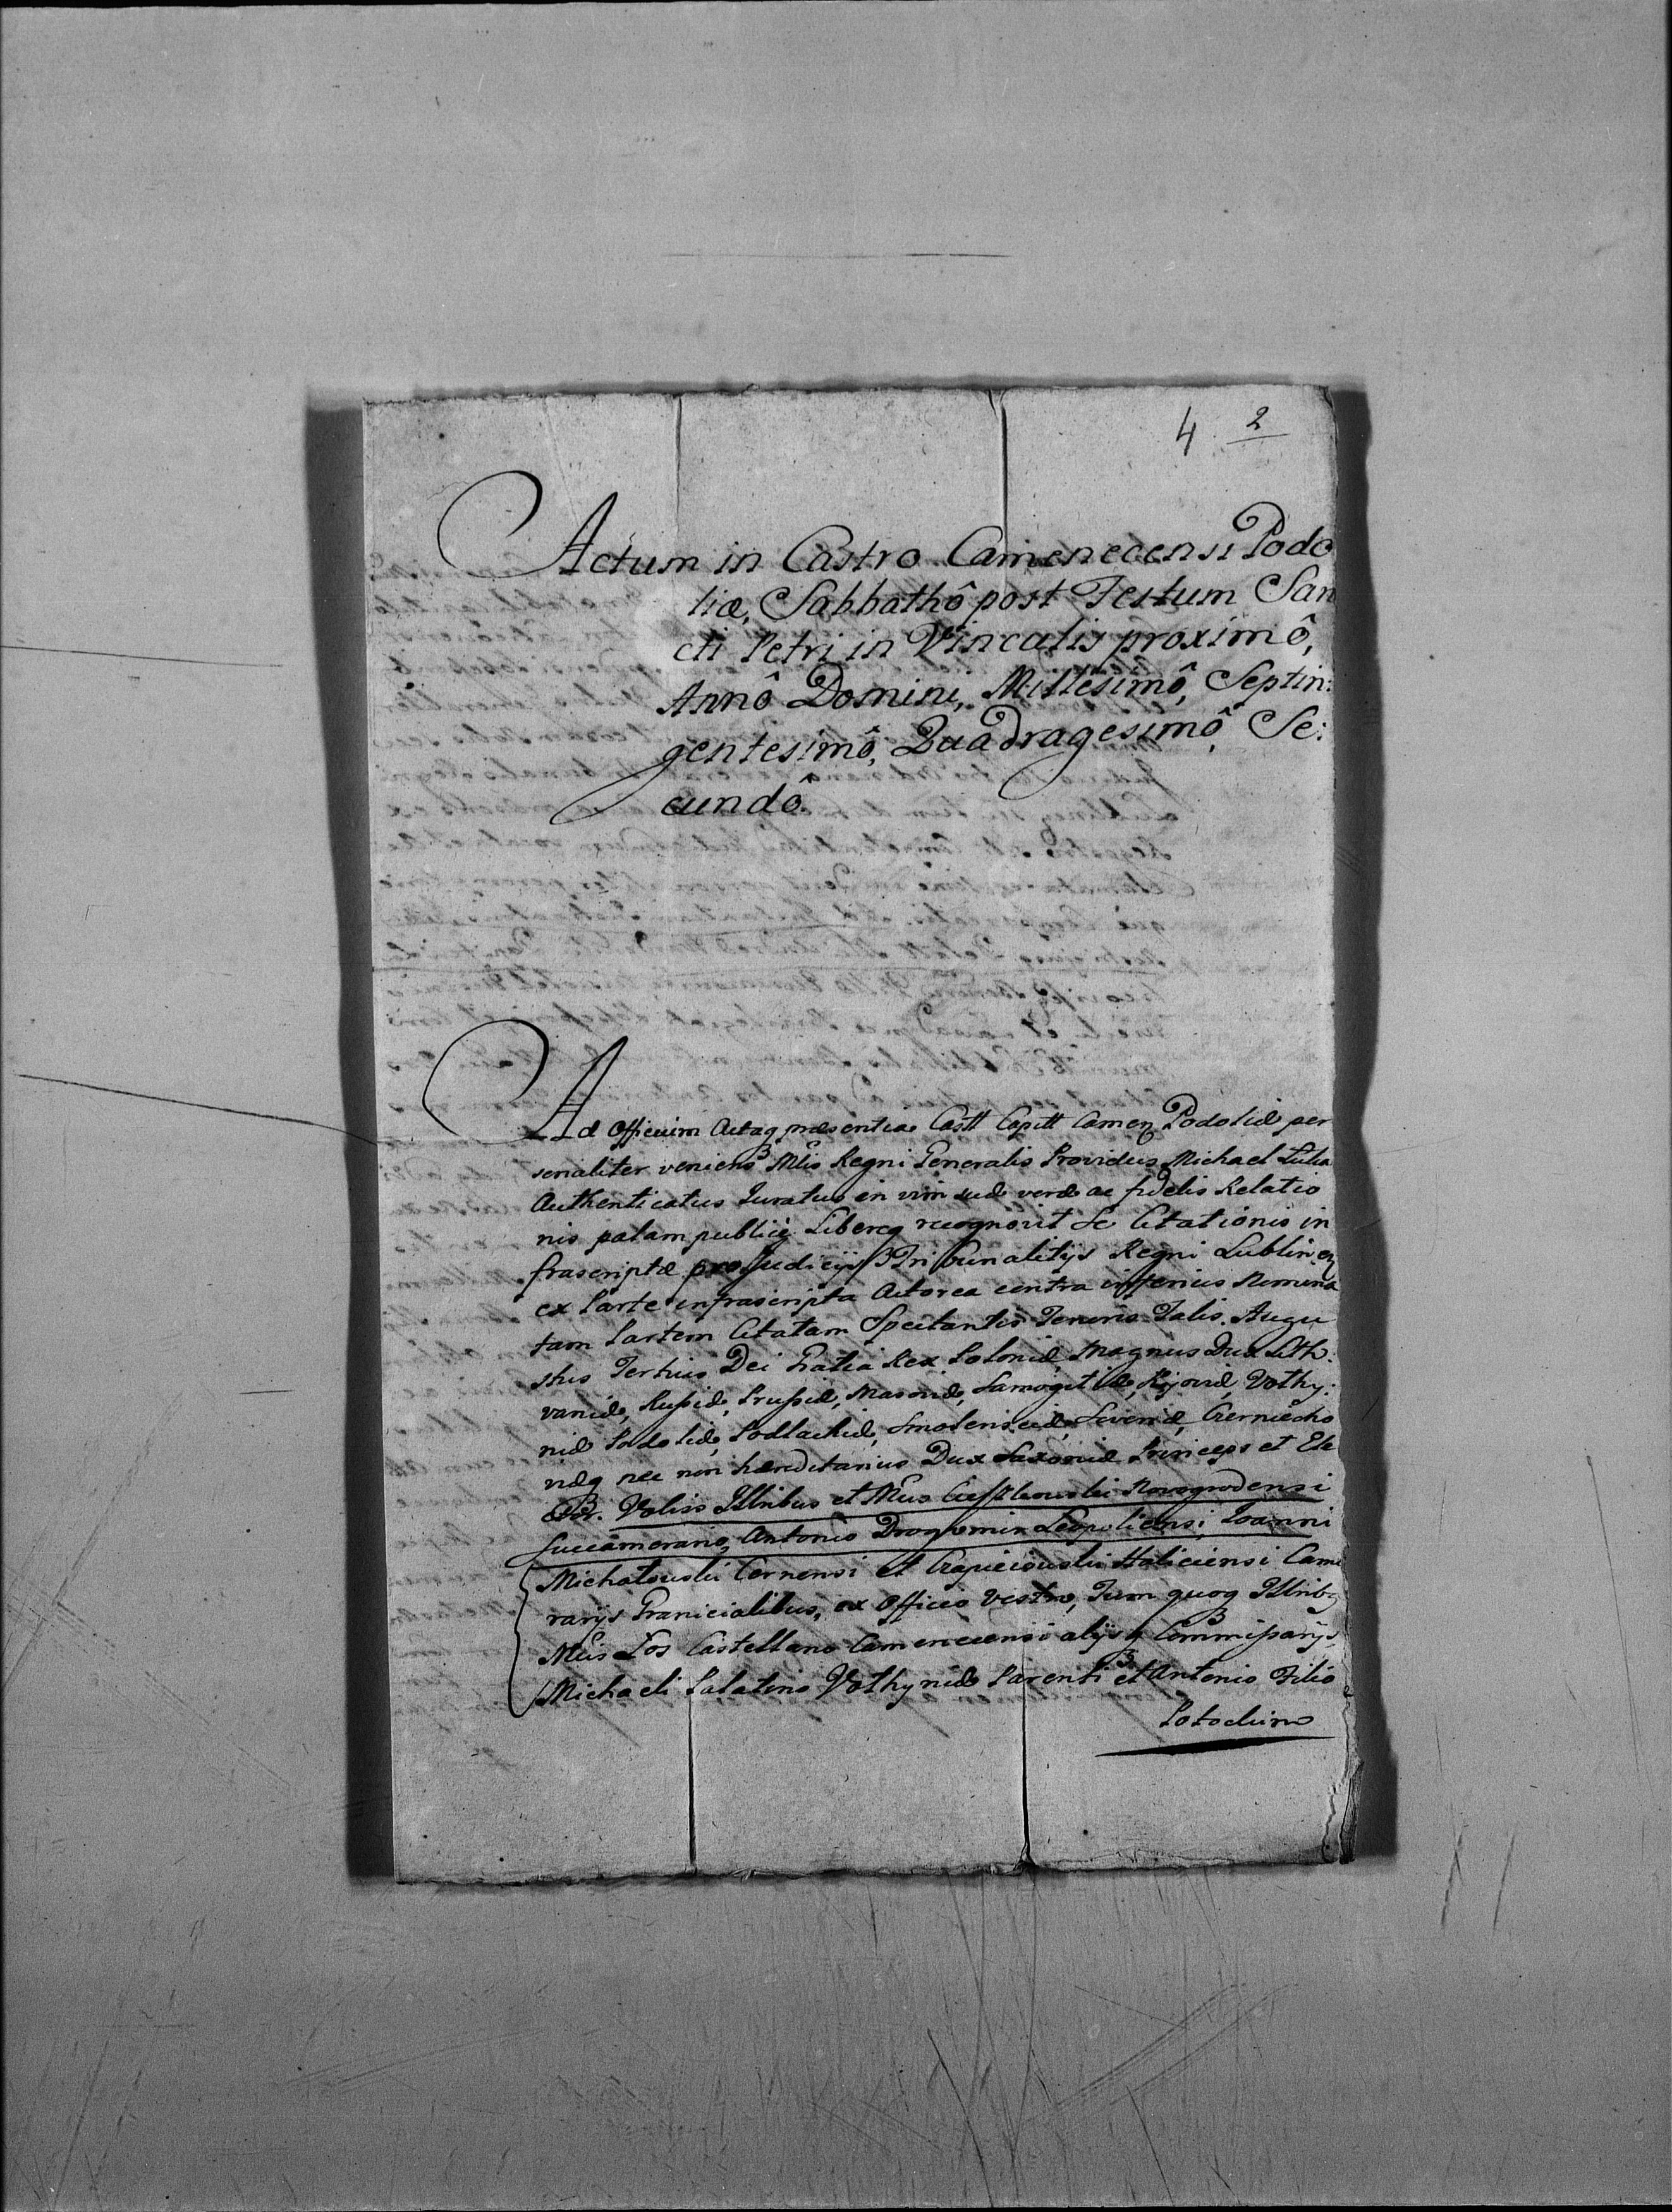 4 2
Actum in Castro Camenecensi Podo
liæ, Sabbathô post Festum San
cti Petri in Vinculis proximô,
Annô Domini, Millesimô, Septin:
gentesimô, Quadragesimô, Se:
cundô.
Ad Officium Actaq præsentia Castt Capitt Camen Podoliæ per
sonaliter veniens Mlis Regni Generalis Providus Michael
Authenticatus Juratus in vim suæ veræ ac fidelis Relatio
nis palam publicè Libereq recognovit Se Citationis in
frascriptæ pro Judicijs Tribunalitijs Regni Lublinen
ex Parte infrascripta Actorea contra inferius Nomina
tam Partem Citatam Spectantis Tenoris Talis. Augu
stus Tertius Dei Gratia Rex Poloniæ, Magnus Dux Lith:
vaniæ, Rußiæ, Prußiæ, Masoviæ, Samogitiæ, Kijoviæ, Volhy:
niæ Podoliæ, Podlachiæ, Smolensciæ, Severiæ, Czerniecho
viæq nec non hæreditarius Dux Saxoniæ Princeps et Ele
ctor. Vobis Illribus et Mcis Novogrodensi
Succamerario, Antonio Drogomir Leopoliensi, Joanni
Michalouski Cernensi et Haliciensi Came
rarijs Granicialibus, ex Officio vestro, Tum quoq Illrib
Mcis Kos Castellano Camenecensi alijsq Commißarijs,
Michaeli Palatino Volhyniæ Parenti et Antonio Filio
Potockim